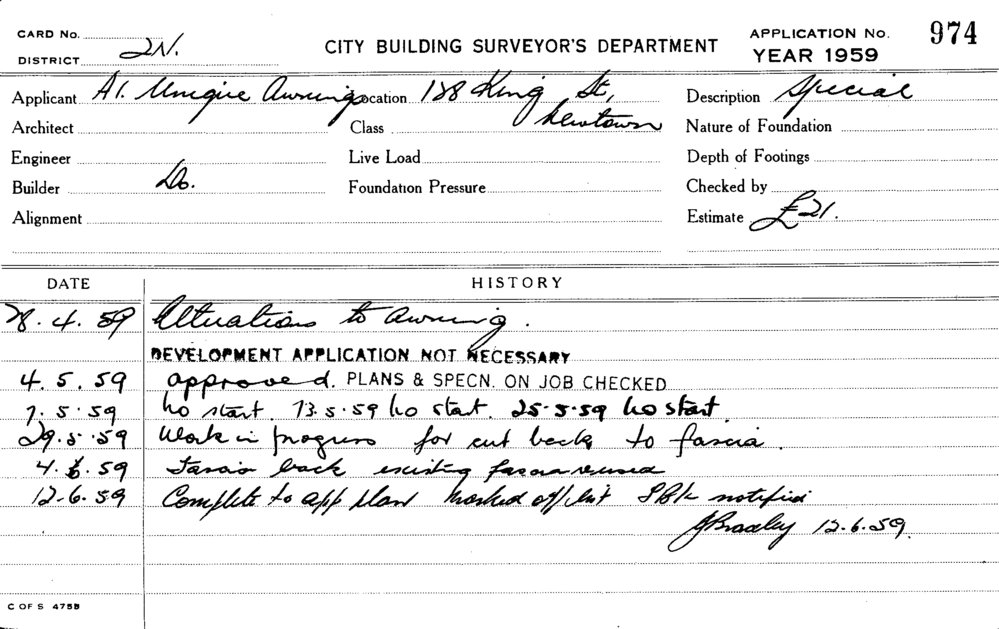 CARD No. APPLICATION No. 974
DISTRICT 2N. CITY BUILDING SURVEYOR'S DEPARTMENT YEAR 1959
Applicant A1. Unique Awnings Location 188 King St, Description Special
Architect Class Newtown Nature of Foundation
Engineer Live Load Depth of Footings
Builder Do. Foundation Pressure Checked by
Alignment Estimate £21.
DATE HISTORY
28.4.59 Alterations to awning.
DEVELOPMENT APPLICATION NOT NECESSARY
4.5.59 approved. PLANS & SPECN. ON JOB CHECKED
7.5.59 No start. 13.5.59 No start. 25.5.59 No start
29.5.59 Work in progress for cut back to fascia.
4.6.59 Fascia back existing fascia reused
12.6.59 Complete to app plan Marked off list notified
JBradley 12.6.59.
C OF S 475B